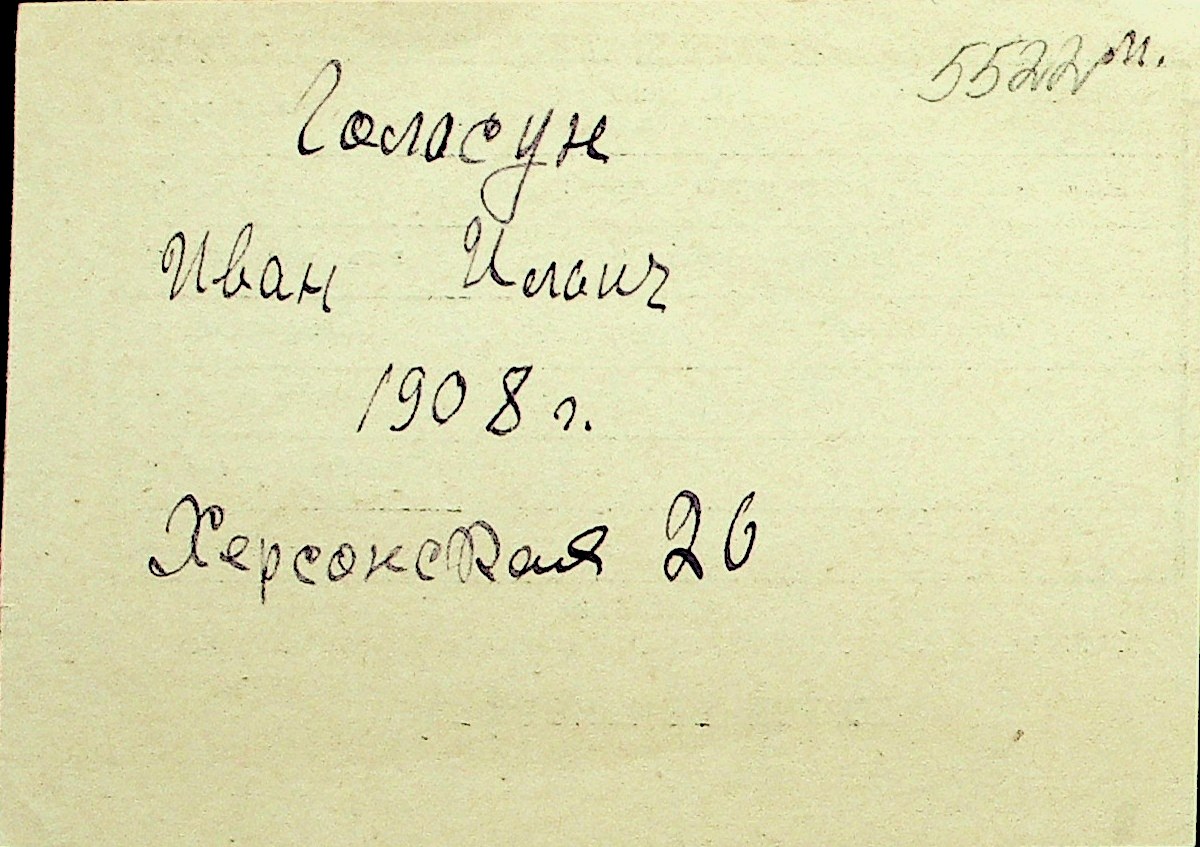 5522м.
Голосун
Иван Ильич
1908 г.
Херсонская 26